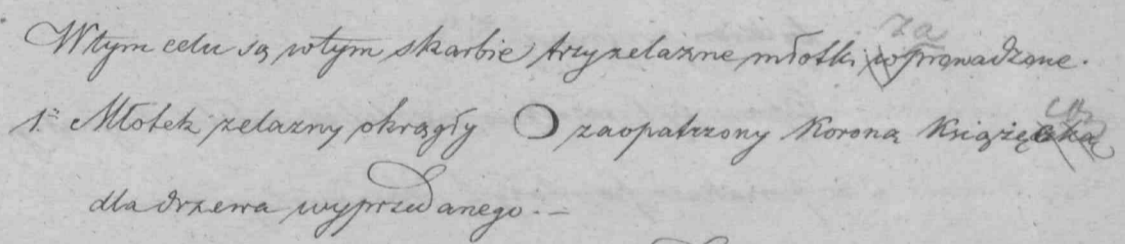 za
W tym celu są w tym skarbie trzy zelazne młotki wprowadzone.
1. Młotek zelazny okrągły O zaopatrzony Koroną Książęcką
dla drzewa wyprzedanego.—